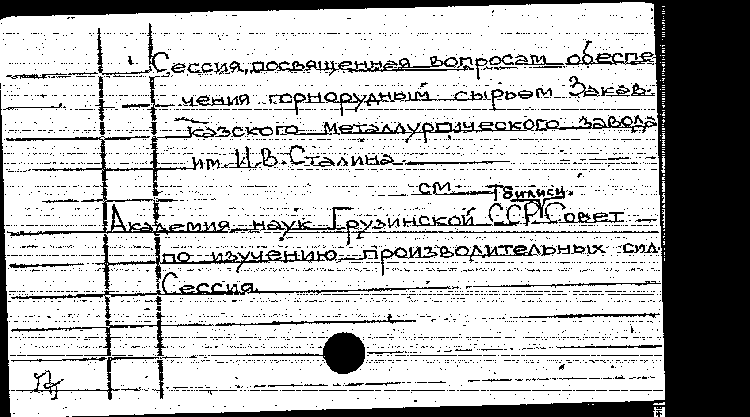 Сессия, посвященная вопросам обеспе-
чения горнорудным сырьем Закав-
казского металлургического завода
им. И.В. Сталина
см. Тбилиси.
Академия наук Грузинской ССР. Совет
по изучению производительных сил.
Сессия.